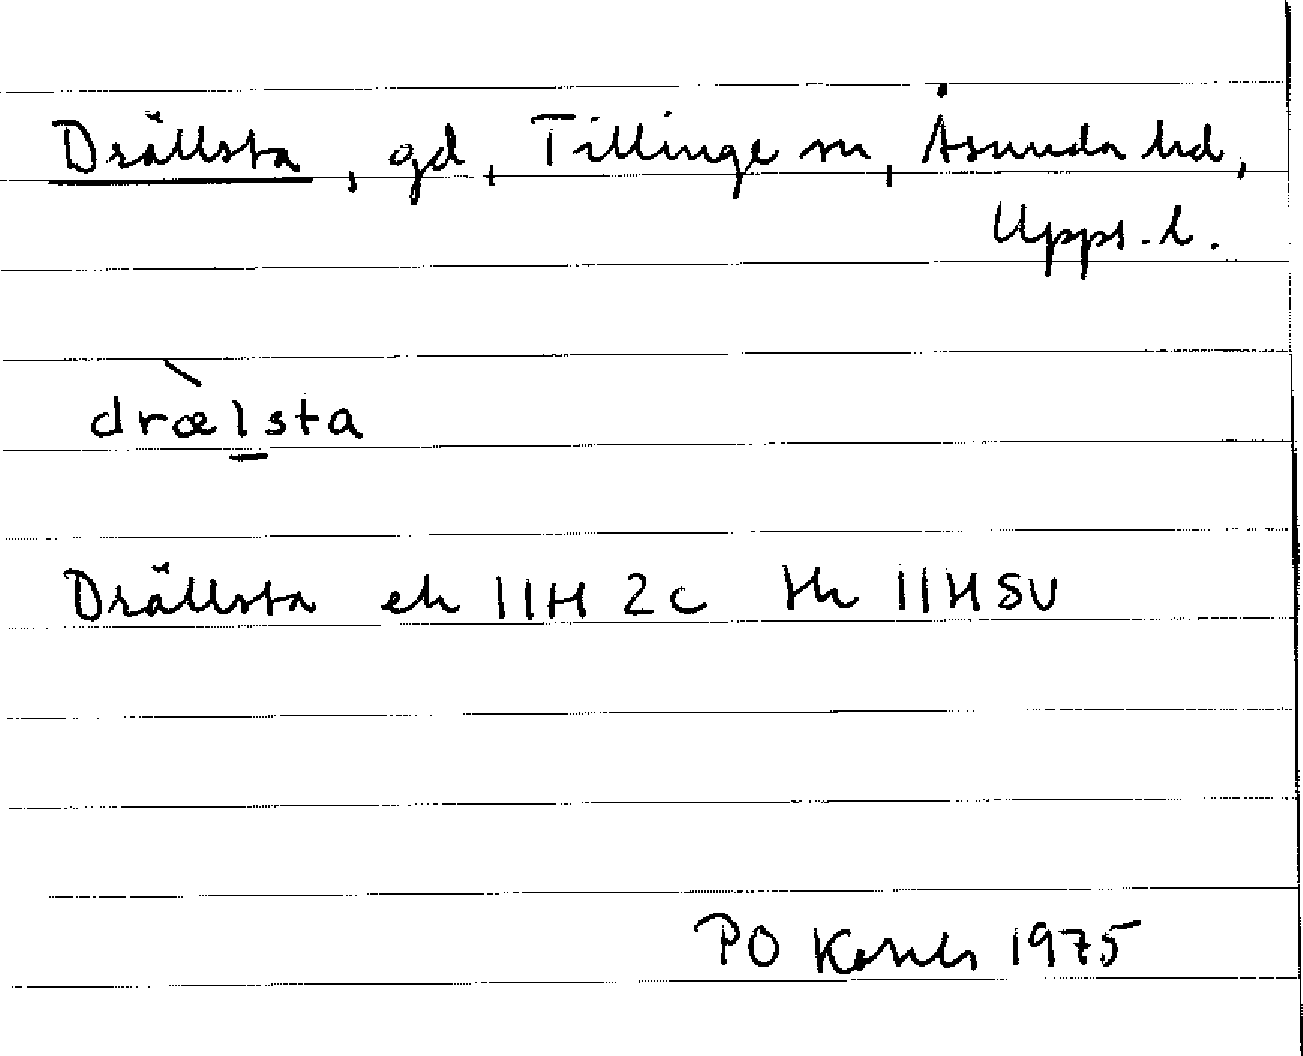 Drällsta, gd, Tillinge sn, Åsunda hd,
Upps. l.
dràelsta
Drällsta ek 11H 2c tk 11HSV
PO 1975